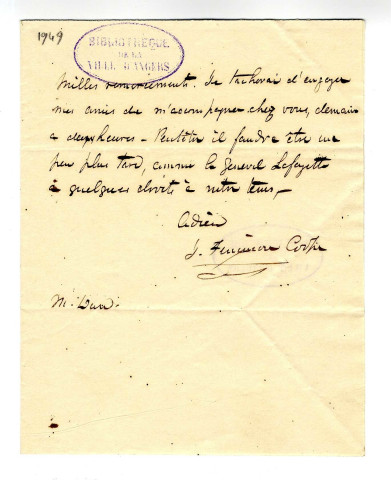 1949
BIBLIOTHÈQUE
DE LA
VILLE D'ANGERS
Milles remerciements. Je tacherai d'engager
mes amies de m'accompagner chez vous, demain
a deux heures - Peutetre il faudra etre un
peu plus tard, comme le general Lafayette
à quelques droits à notre tems,-
Adieu
J. Fenimore Cooper